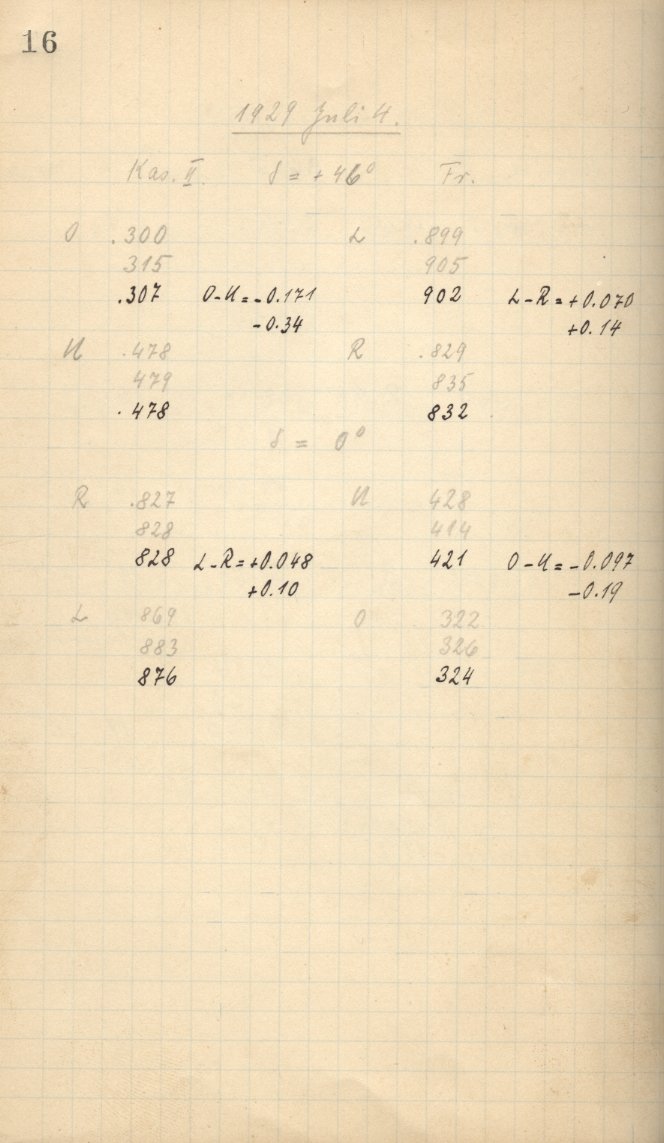 16
1929 Juli 4.
Kas. II. δ = + 46° Fr.
O .300 L .899
315 905
.307 O-U = -0.171 902 L-R = +0.070
-0.34 +0.14
U .478 R .829
479 835
.478 832
δ = 0°
R .827 U 428
828 414
828 L-R = +0.048 421 O-U = -0.097
+0.10 -0.19
L 869 O 322
883 326
876 324